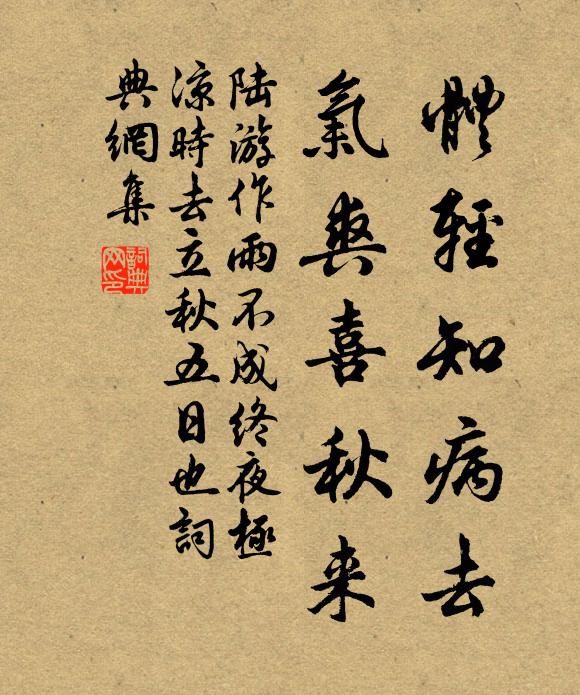 體輕知病去
氣爽喜秋来
陆游作雨不成终夜極
凉時去立秋五日也詞
典網集
詞典
网印